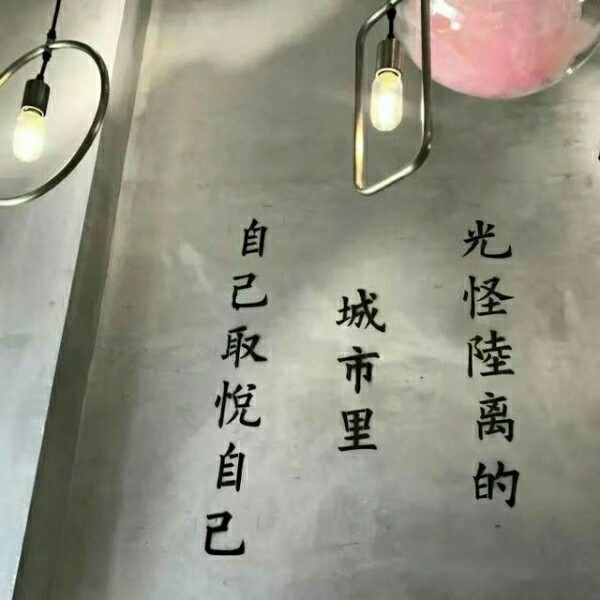 光怪陸离的
城市里
自己取悅自己